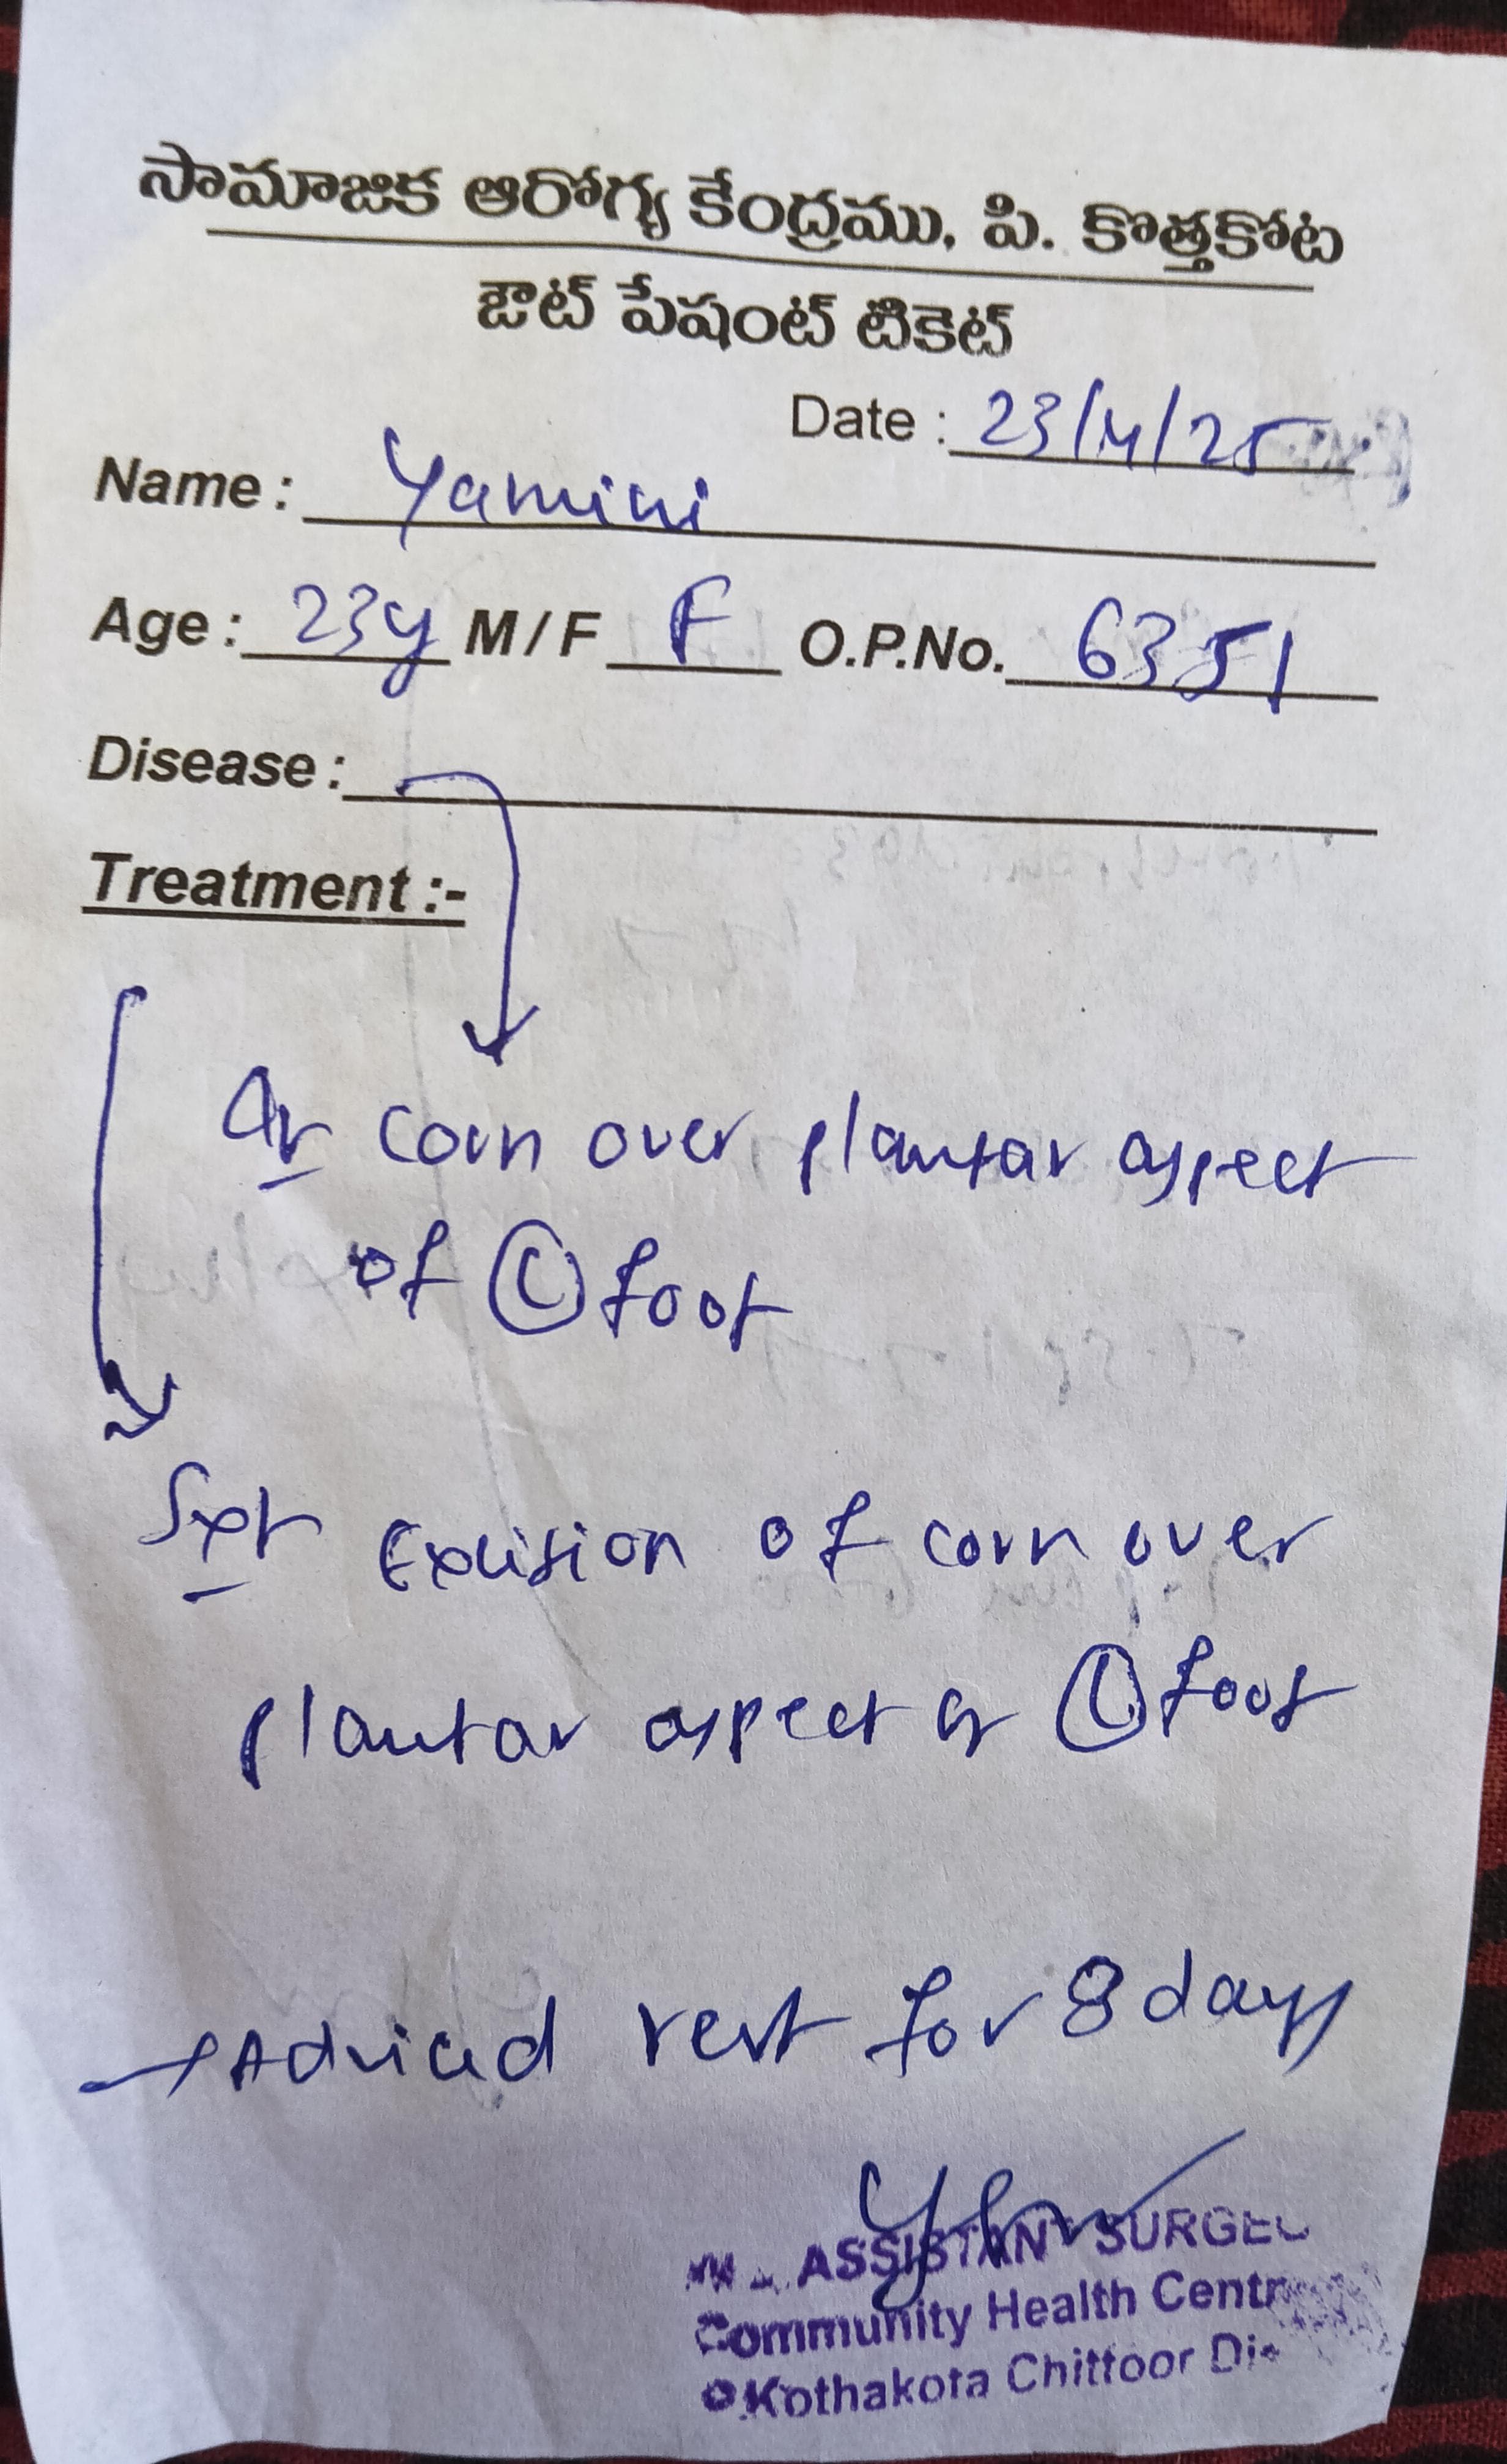 సామాజిక ఆరోగ్య కేంద్రము, పి. కొత్తకోట
ఔట్ పేషంట్ టికెట్
Date : 23/4/25
Name : Yamini
Age : 23y M / F F O.P.No. 6351
Disease :
Treatment :-
corn over plantar aspect
of Ⓛ foot
Excision of corn over
plantar aspect of Ⓛ foot
→ Adviced rest for 8 days
ASSISTANT SURGEO
Community Health Centr
Kothakota Chittoor Dis